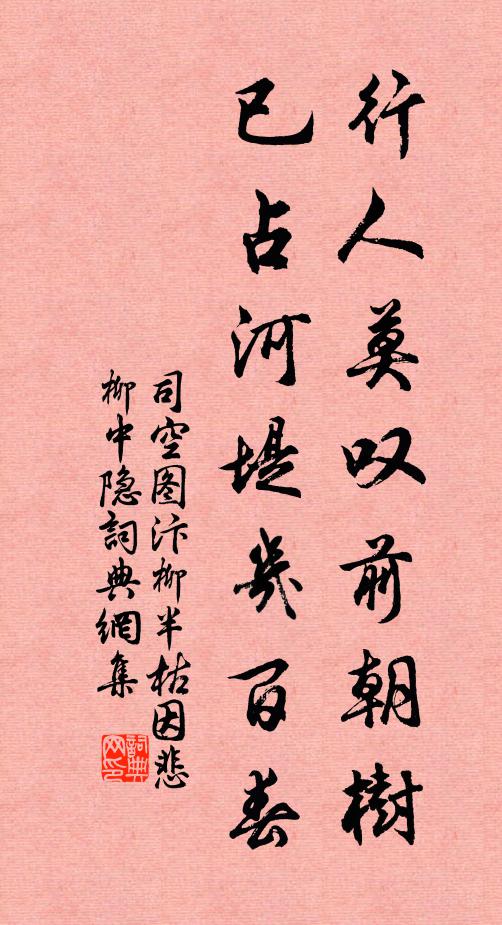 行人莫叹前朝樹
已占河堤幾百春
司空图汴柳半枯因悲
柳中隐詞典網集
詞典
网印